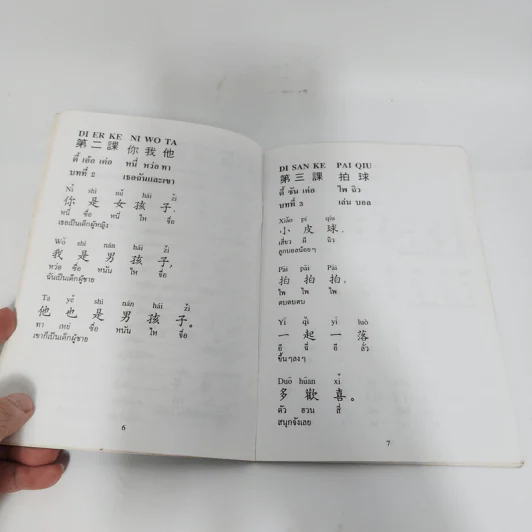 DI ER KE NI WO TA
第二課 你我他
ตี้ เอ้อ เค่อ หนี่ หว่อ ทา
บทที่ ๕ เธอฉันและเขา
Nǐ shì nǚ hái zi
你是女孩子,
หนี่ ซื่อ หนี่ ไห จื่อ
เธอเป็นเด็กผู้หญิง
Wǒ shì nán hái zi
我是男孩子,
หว่อ ซื่อ หนัน ไห จื่อ
ฉันเป็นเด็กผู้ชาย
Ta yě shì nán hái zi
他也是男孩子。
ทา เหย่ ซื่อ หนัน ไห จื่อ
เขาก็เป็นเด็กผู้ชาย
6
DI SAN KE PAI QIU
第三課 拍球
ตี้ ซัน เค่อ ไพ ฉิว
บทที่ 3 เล่น บอล
Xiǎo pí qiu
小皮球,
เสี่ยว ผี ฉิว
ลูกบอลน้อยๆ
Pāi pāi Pāi
拍拍拍,
ไพ ไพ ไพ
ตบตบตบ
Yī qǐ yī luò
一起一落
อี ฉี่ อี ลั่ว
ขึ้นๆลงๆ
Duō huān xǐ
多歡喜。
ตัว ฮวน สี่
สนุกจังเลย
7